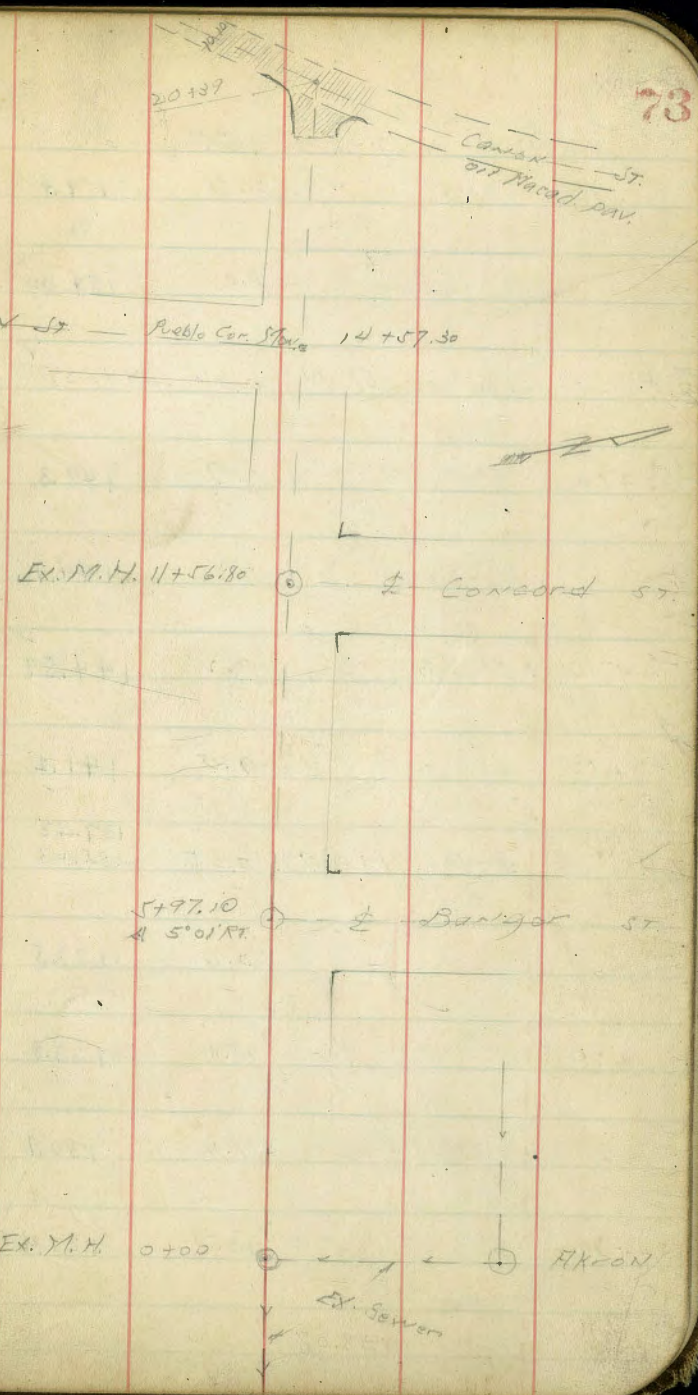 73
20+39
Canon ST.
oil Macad. pav.
ST Pueblo Cor. Mon. 14+57.30
Ex. M.H. 11+56.80 ℄ Concord ST.
5+97.10 ℄ Bangor ST
∆ 5°01' RT.
Ex. M.H. 0+00 AKron
Ex. Sewer